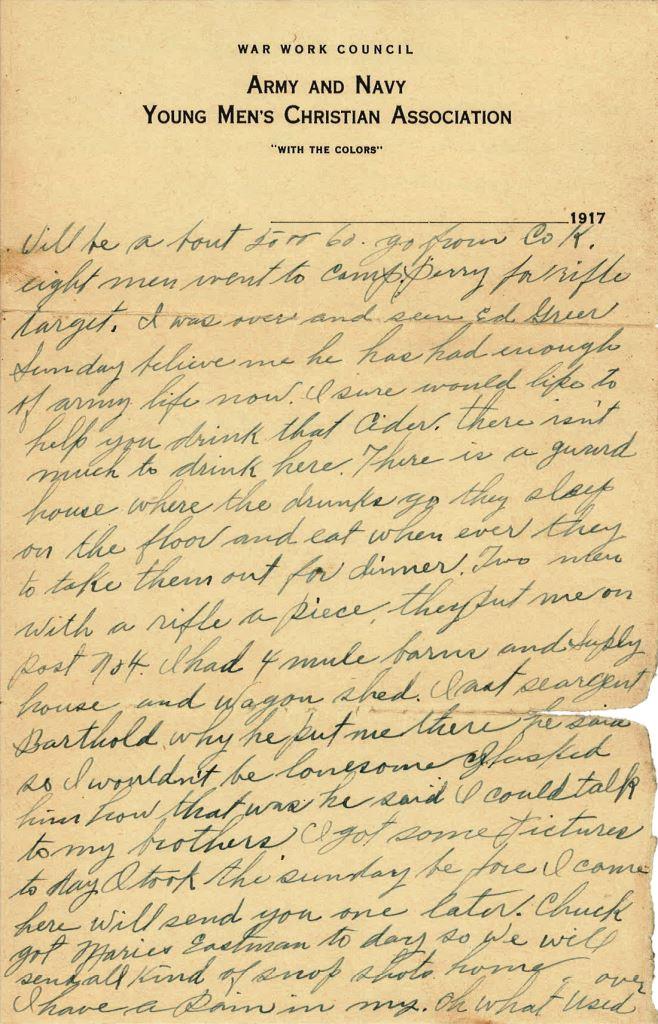 WAR WORK COUNCIL
ARMY AND NAVY
YOUNG MEN'S CHRISTIAN ASSOCIATION
"WITH THE COLORS"
1917
Will be a bout 50 or 60. go from Co K.
eight men went to Camp. Perry for rifle
target. I was over and seen Ed Greer
Sunday believe me he has had enough
of army life now. I sure would like to
help you drink that Cider. there isn't
much to drink here. There is a guard
house where the drunks go they sleep
on the floor and eat when ever they
to take them out for dinner. Two men
with a rifle a piece, they put me on
post No 4. I had 4 mule barns and suply
house and wagon shed. I ast seargent
Barthold why he put me there he said
so I wouldn't be lonesome I asked
him how that was he said I could talk
to my brothers I got some Pictures
to day I took the sunday be fore I came
here will send you one later. Chuck
got Maries Eastman to day so we will
send all kind of snop shots home
I have a Pain in my. Oh what used
over